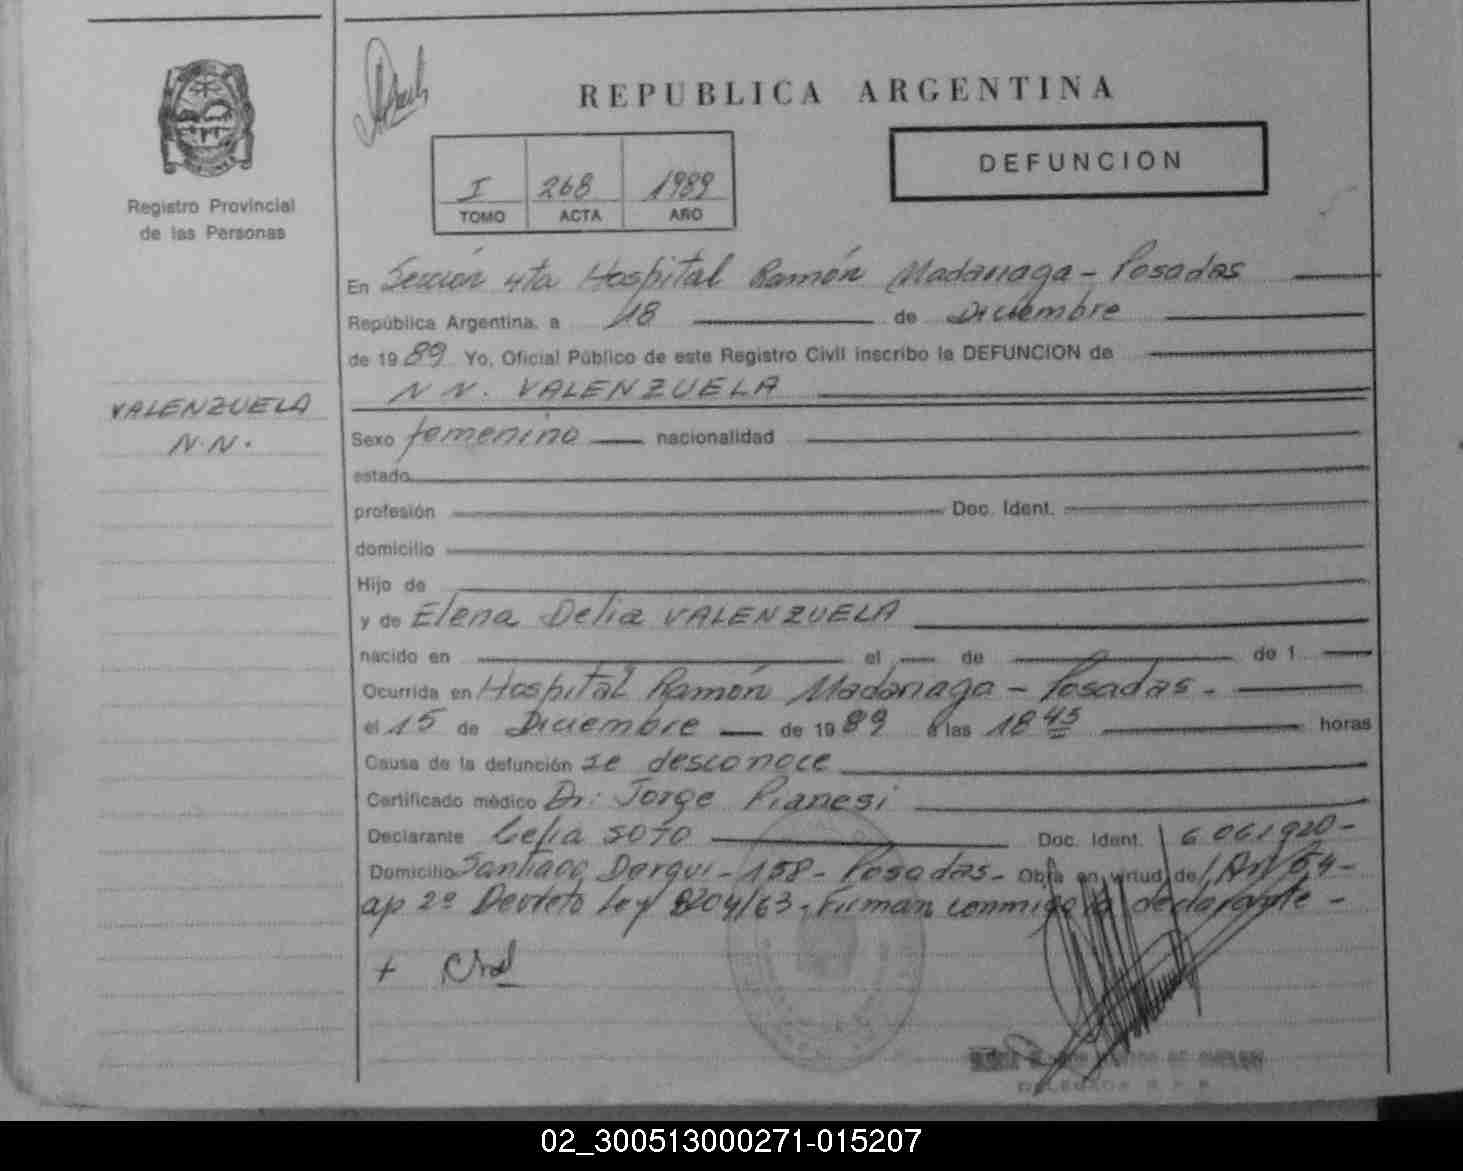 REPUBLICA ARGENTINA
DEFUNCION
I 268 1989
TOMO ACTA AÑO
Registro Provincial
de las Personas
VALENZUELA
N.N.
En Sección 4ta Hospital Ramón Madariaga - Posadas
República Argentina, a 18 de Diciembre
de 1989 Yo, Oficial Público de este Registro Civil inscribo la DEFUNCION de
N N. VALENZUELA
Sexo femenino nacionalidad
estado
profesión Doc. Ident.
domicilio
Hijo de
y de Elena Delia VALENZUELA
nacido en el de de 1
Ocurrida en Hospital Ramón Madariaga - Posadas -
el 15 de Diciembre de 1989 a las 18 45 horas
Causa de la defunción se desconoce
Certificado médico Dr: Jorge Pianesi
Declarante Celia SOTO Doc. Ident. 6.061.920-
Domicilio Santiago Derqui - 158 - Posadas - Obra en virtud de Art 54-
ap 2º Decreto Ley 8204/63 - Firman conmigo la declarante -
+
02_300513000271-015207